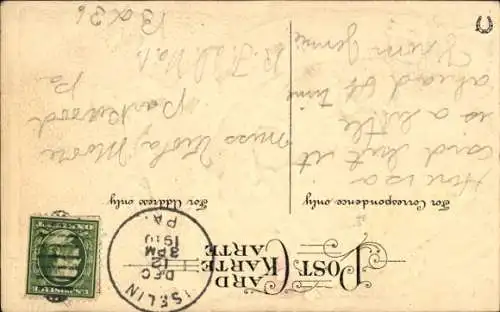 POST CARD
CARTE KARTE
For Correspondence only
For Address only
ISELIN
DEC
12
3 PM
1910
PA.
Here is a
card but it
is a little
ahead of time
from Jennie
Miss Viola Moore
Parkwood
Pa.
R.F.D. No. 1.
Box 36